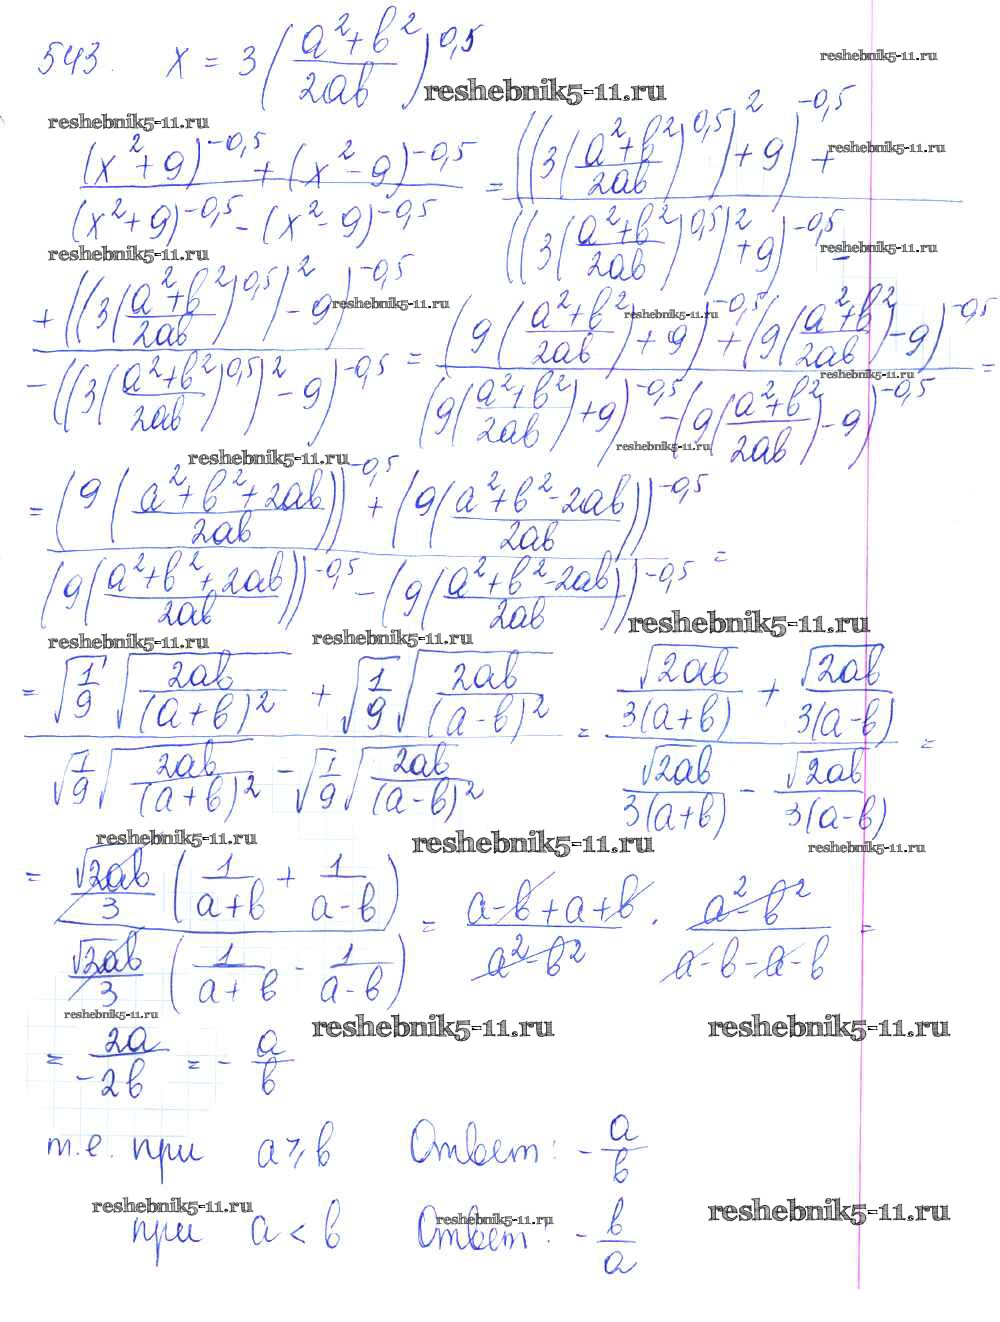 543. x = 3((a²+b²)/(2ab))^0,5
reshebnik5-11.ru
reshebnik5-11.ru
reshebnik5-11.ru
((x²+9)^-0,5 + (x²-9)^-0,5)/((x²+9)^-0,5 - (x²-9)^-0,5) = (((3((a²+b²)/(2ab))^0,5)²+9)^-0,5 +)/(((3((a²+b²)/(2ab))^0,5)²+9)^-0,5 -)
reshebnik5-11.ru
reshebnik5-11.ru
reshebnik5-11.ru
(+ ((3((a²+b²)/(2ab))^0,5)²-9)^-0,5)/(- ((3((a²+b²)/(2ab))^0,5)²-9)^-0,5) = ((9((a²+b²)/(2ab))+9)^-0,5 + (9((a²+b²)/(2ab))-9)^-0,5)/((9((a²+b²)/(2ab))+9)^-0,5 - (9((a²+b²)/(2ab))-9)^-0,5) =
reshebnik5-11.ru
reshebnik5-11.ru
reshebnik5-11.ru
reshebnik5-11.ru
reshebnik5-11.ru
= ((9((a²+b²+2ab)/(2ab)))^-0,5 + (9((a²+b²-2ab)/(2ab)))^-0,5)/((9((a²+b²+2ab)/(2ab)))^-0,5 - (9((a²+b²-2ab)/(2ab)))^-0,5) =
reshebnik5-11.ru
reshebnik5-11.ru
reshebnik5-11.ru
= (√(1/9) √(2ab/(a+b)²) + √(1/9) √(2ab/(a-b)²))/(√(1/9) √(2ab/(a+b)²) - √(1/9) √(2ab/(a-b)²)) = (√2ab/(3(a+b)) + √2ab/(3(a-b)))/(√2ab/(3(a+b)) - √2ab/(3(a-b))) =
reshebnik5-11.ru
reshebnik5-11.ru
reshebnik5-11.ru
= (√2ab/3 (1/(a+b) + 1/(a-b)))/(√2ab/3 (1/(a+b) - 1/(a-b))) = (a-b+a+b)/(a²-b²) · (a²-b²)/(a-b-a-b) =
reshebnik5-11.ru
reshebnik5-11.ru
reshebnik5-11.ru
= 2a/(-2b) = - a/b
т.е. при a ≥ b Ответ: - a/b
reshebnik5-11.ru
reshebnik5-11.ru
reshebnik5-11.ru
при a < b Ответ: - b/a